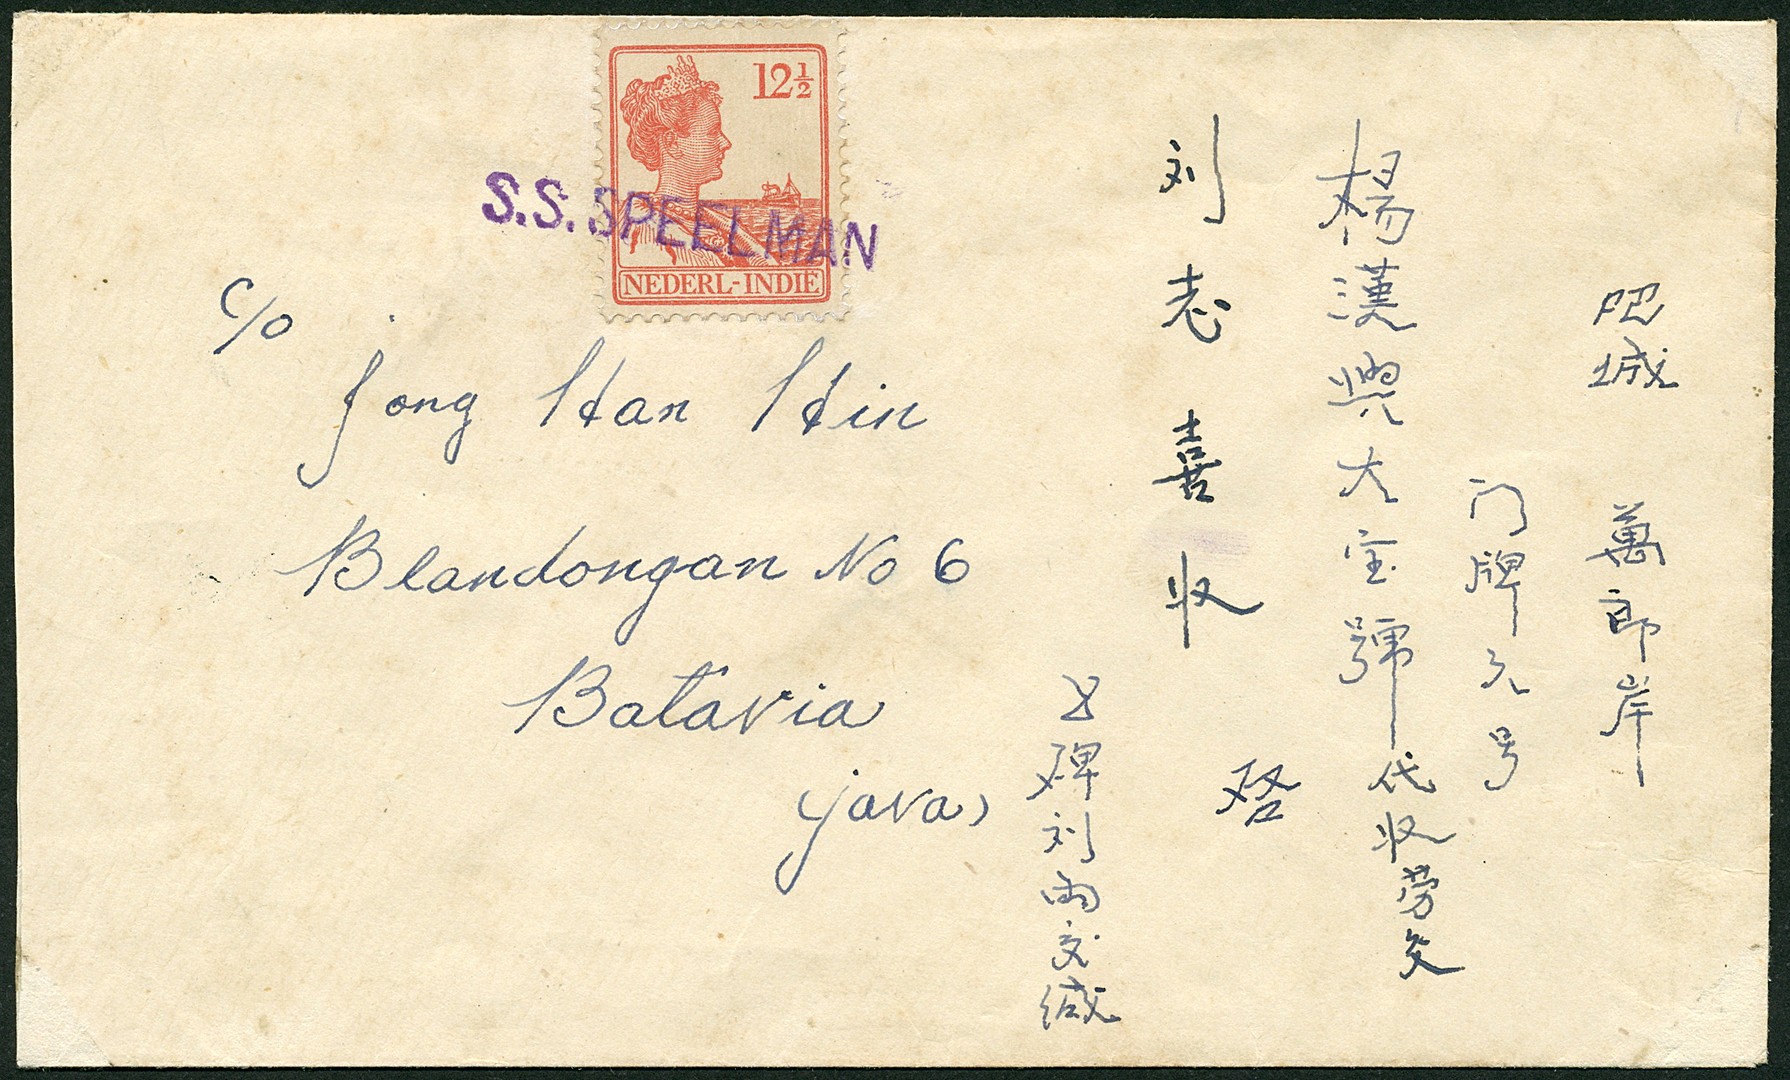 12½
NEDERL-INDIË
S.S. SPEELMAN
c/o
Jong Han Hin
Blandongan No 6
Batavia
Java,
吧城 萬郎岸
门牌六号
楊漢興大宝號代收劳交
刘志喜收 啓
刘雨文緘